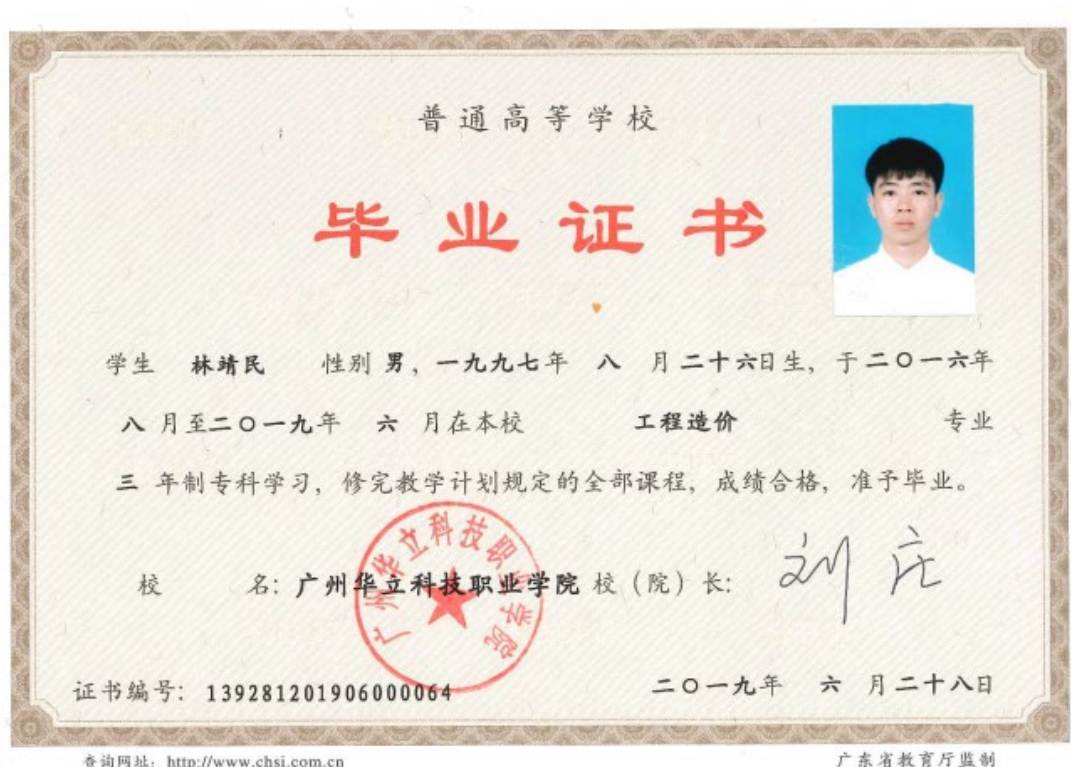 普通高等学校
毕业证书
学生 林靖民 性别 男，一九九七年 八 月二十六日生，于二〇一六年
八 月至二〇一九年 六 月在本校 工程造价 专业
三 年制专科学习，修完教学计划规定的全部课程，成绩合格，准予毕业。
广州华立科技职业学院
校 名：广州华立科技职业学院 校（院）长：刘庄
证书编号：139281201906000064 二〇一九年 六 月二十八日
查询网址：http://www.chsi.com.cn 广东省教育厅监制